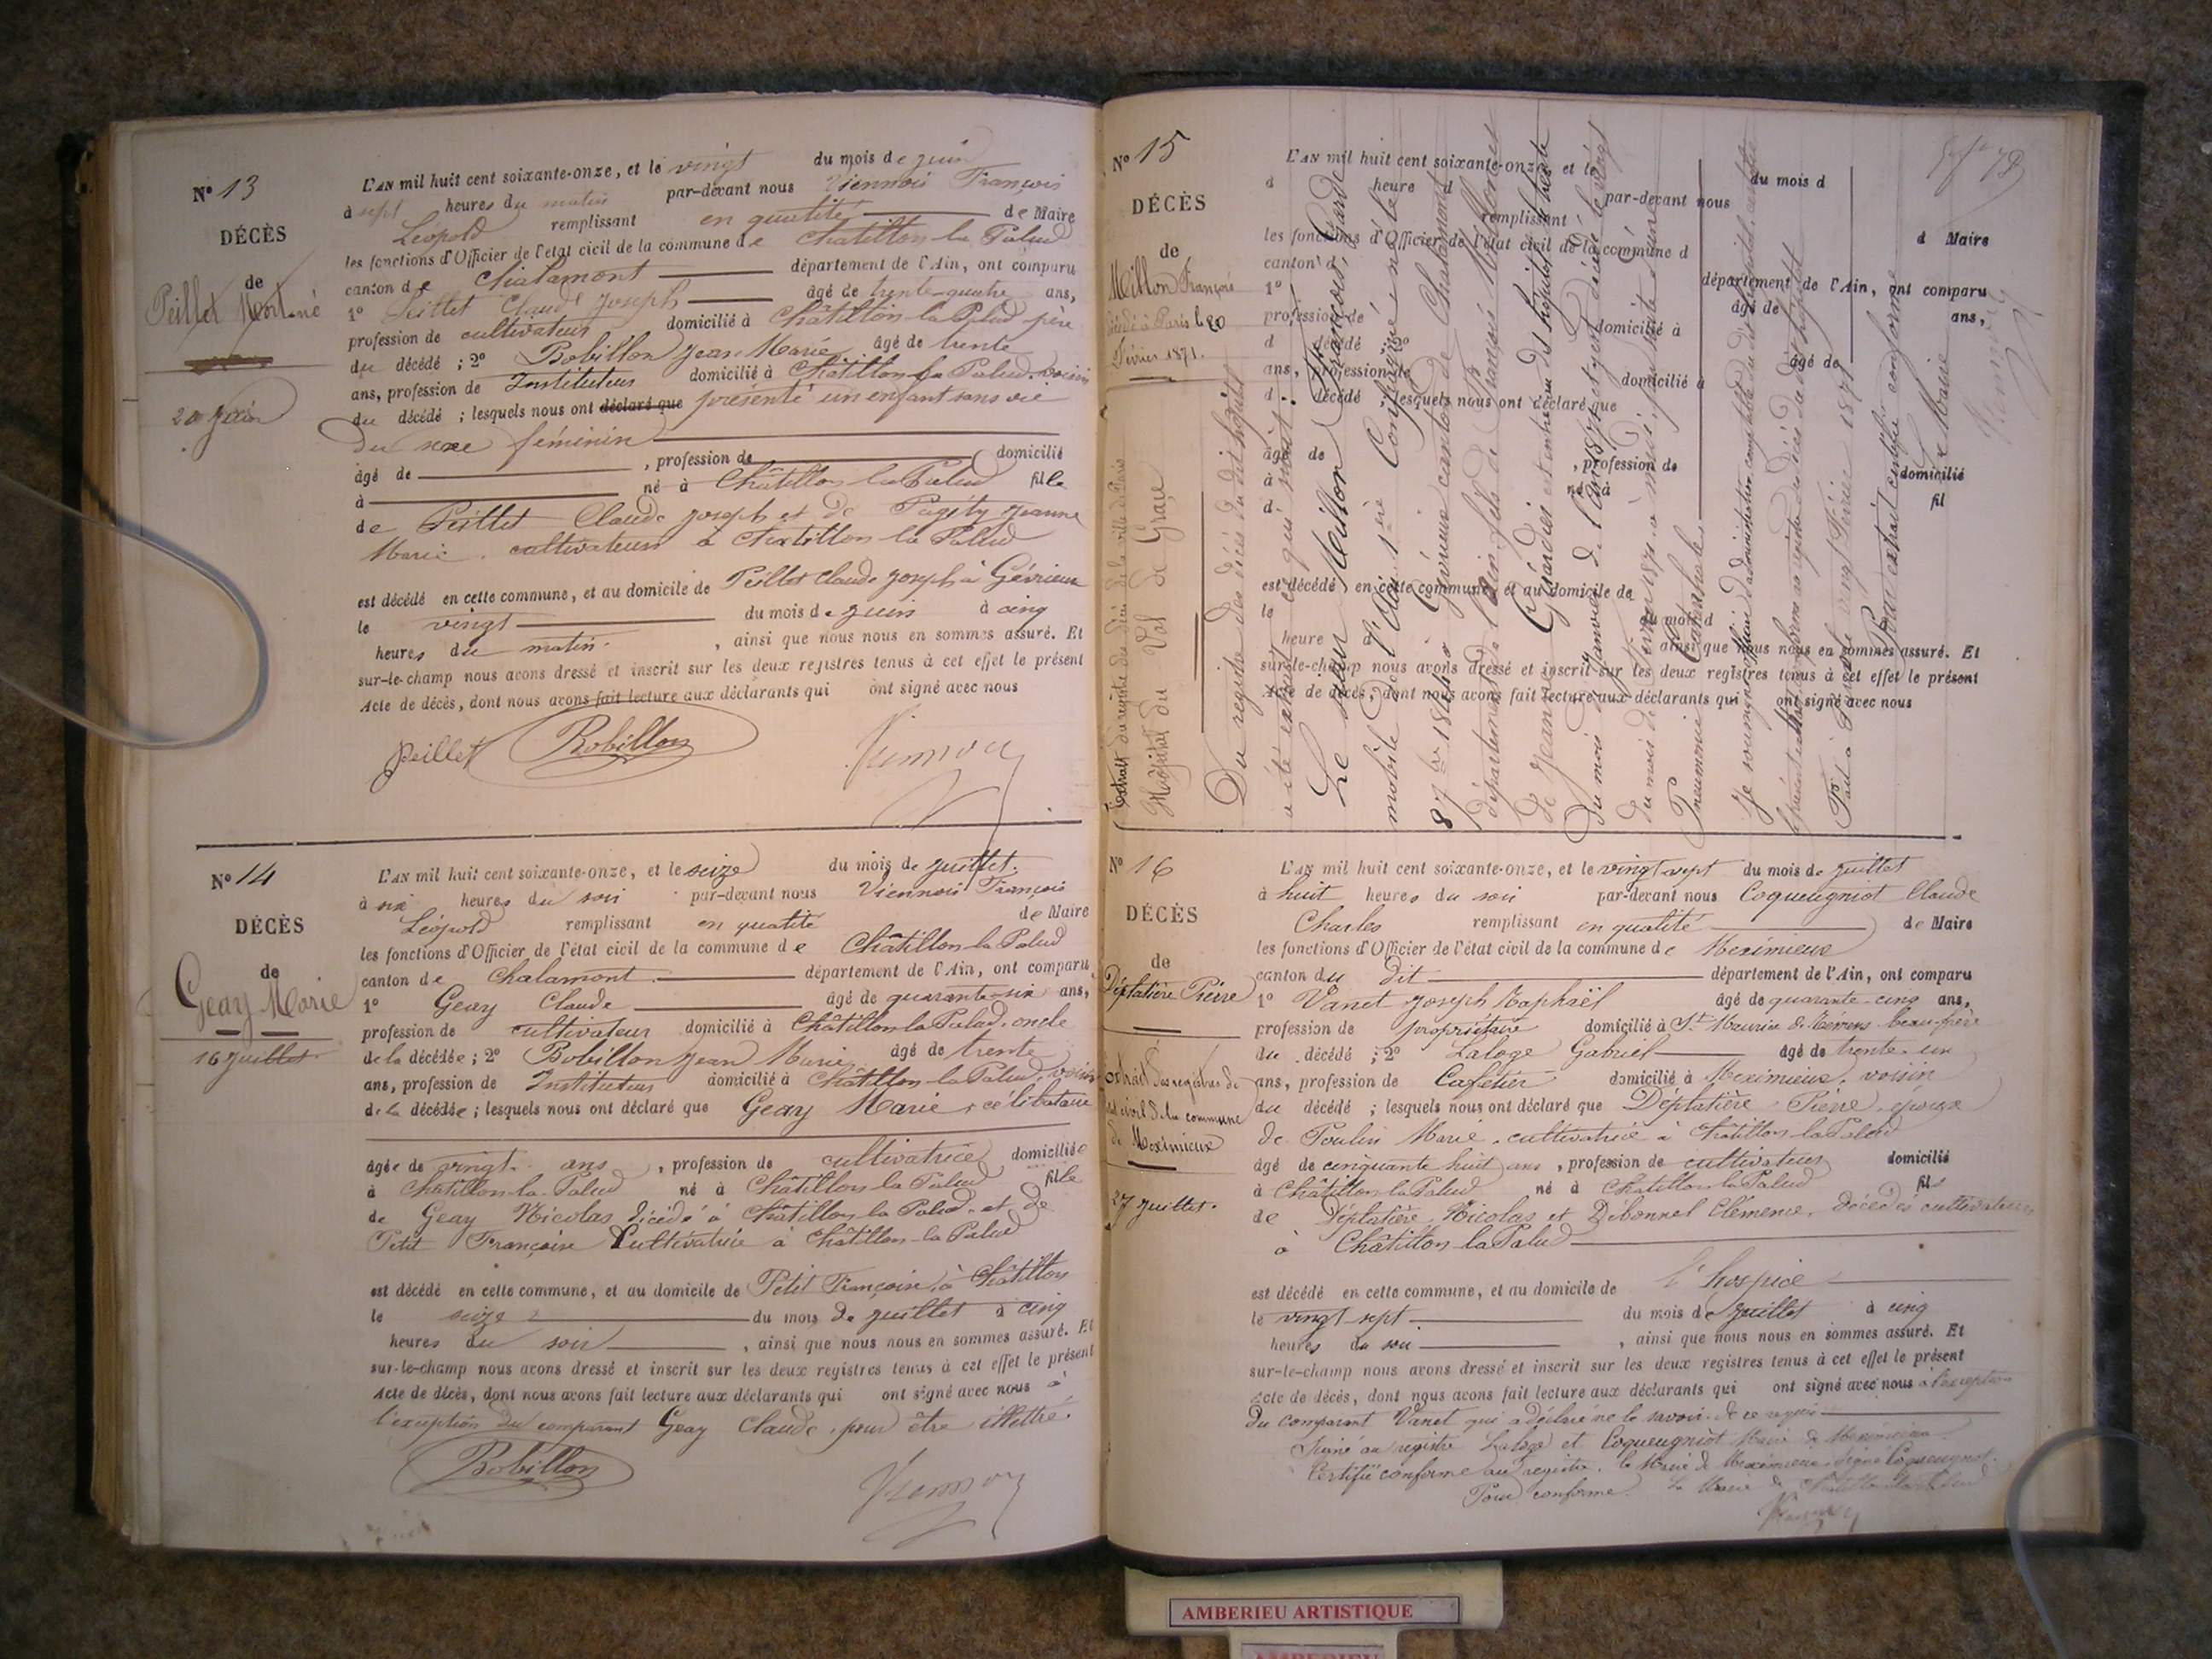 N° 13
DÉCÈS
de
Peillet Mort-né
20 Juin
L'AN mil huit cent soixante-onze, et le vingt du mois de juin
à sept heures du matin par-devant nous Viennois François
Léopold remplissant en qualité de Maire
les fonctions d'Officier de l'état civil de la commune de Châtillon la Palud
canton de Chalamont département de l'Ain, ont comparu
1° Peillet Claude Joseph âgé de trente-quatre ans,
profession de cultivateur domicilié à Châtillon la Palud père
du décédé ; 2° Bobillon Jean Marie âgé de trente
ans, profession de Instituteur domicilié à Châtillon la Palud, voisin
du décédé ; lesquels nous ont déclaré que présenté un enfant sans vie
du sexe féminin
âgé de , profession de domicilié
à né à Châtillon la Palud fille
de Peillet Claude Joseph et de Jeanne
Marie, cultivateurs à Châtillon la Palud
est décédé en cette commune, et au domicile de Peillet Claude Joseph à Gévrieux
le vingt du mois de juin à cinq
heures du matin , ainsi que nous nous en sommes assuré. Et
sur-le-champ nous avons dressé et inscrit sur les deux registres tenus à cet effet le présent
Acte de décès, dont nous avons fait lecture aux déclarants qui ont signé avec nous
Peillet Bobillon Viennois
N° 14
DÉCÈS
de
Geay Marie
16 Juillet.
L'AN mil huit cent soixante-onze, et le seize du mois de juillet.
à six heures du soir par-devant nous Viennois François
Léopold remplissant en qualité de Maire
les fonctions d'Officier de l'état civil de la commune de Châtillon la Palud
canton de Chalamont département de l'Ain, ont comparu
1° Geay Claude âgé de quarante-six ans,
profession de cultivateur domicilié à Châtillon la Palud, oncle
de la décédée ; 2° Bobillon Jean Marie âgé de trente
ans, profession de Instituteur domicilié à Châtillon la Palud, voisin
de la décédée ; lesquels nous ont déclaré que Geay Marie, célibataire
âgée de vingt ans , profession de cultivatrice domiciliée
à Châtillon la Palud né à Châtillon la Palud fille
de Geay Nicolas décédé à Châtillon la Palud, et de
Petit Françoise Cultivatrice à Châtillon la Palud
est décédé en cette commune, et au domicile de Petit Françoise, à Châtillon
le seize du mois de juillet à cinq
heures du soir , ainsi que nous nous en sommes assuré. Et
sur-le-champ nous avons dressé et inscrit sur les deux registres tenus à cet effet le présent
Acte de décès, dont nous avons fait lecture aux déclarants qui ont signé avec nous à
l'exception du comparant Geay Claude, pour être illettré.
Bobillon Viennois
N° 15
DÉCÈS
de
Millon François
décédé à Paris le 20
Février 1871.
L'AN mil huit cent soixante-onze, et le du mois d
à heure d par-devant nous
remplissant d Maire
les fonctions d'Officier de l'état civil de la commune d
canton d département de l'Ain, ont comparu
1° âgé de ans,
profession de domicilié à
d décédé 2° âgé de
ans, profession de domicilié à
d décédé lesquels nous ont déclaré que
âgé de , profession de domicilié
à né à fil
d
est décédé en cette commune, et au domicile de
le du mois d
heure d ainsi que nous nous en sommes assuré. Et
sur-le-champ nous avons dressé et inscrit sur les deux registres tenus à cet effet le présent
Acte de décès, dont nous avons fait lecture aux déclarants qui ont signé avec nous
Extrait du registre des décès de la ville de Paris
Hôpital du Val de Grâce
Du registre des décès du dit hôpital
a été extrait ce qui suit :
Le sieur Millon François, Garde
mobile de l'Ain 1ère Compagnie né le
8 7bre 18 à Gévrieux canton de Chalamont
département de l'Ain, fils de François Millon et
de Jeanne Girardier est entré au dit hôpital le trente
du mois de Janvier de l'an 1871 et y est décédé le vingt
du mois de Février 1871 à midi par suite de
Pneumonie
Je soussigné Officier d'administration comptable du dit hôpital certifie
le présent extrait conforme au registre des décès du dit hôpital
Fait à Paris le vingt Février 1871
Pour extrait certifié conforme
Le Maire
N° 16
DÉCÈS
de
Déplatière Pierre
Extrait des registres de
l'état civil de la commune
de Meximieux
27 Juillet.
L'AN mil huit cent soixante-onze, et le vingt sept du mois de juillet
à huit heures du soir par-devant nous Coqueugniot Claude
Charles remplissant en qualité de Maire
les fonctions d'Officier de l'état civil de la commune de Meximieux
canton du dit département de l'Ain, ont comparu
1° Vanet Joseph Raphaël âgé de quarante-cinq ans,
profession de propriétaire domicilié à St Maurice de Rémens beau-frère
du décédé ; 2° Laloge Gabriel âgé de trente-un
ans, profession de Cafetier domicilié à Meximieux, voisin
du décédé ; lesquels nous ont déclaré que Déplatière Pierre, époux
de Poulin Marie, cultivatrice à Châtillon la Palud
âgé de cinquante huit ans , profession de cultivateur domicilié
à Châtillon la Palud né à Châtillon la Palud fils
de Déplatière Nicolas et Débonnel Clémence, décédés cultivateurs
à Châtillon la Palud
est décédé en cette commune, et au domicile de l'hospice
le vingt-sept du mois de Juillet à cinq
heures du soir , ainsi que nous nous en sommes assuré. Et
sur-le-champ nous avons dressé et inscrit sur les deux registres tenus à cet effet le présent
Acte de décès, dont nous avons fait lecture aux déclarants qui ont signé avec nous à l'exception
du comparant Vanet qui a déclaré ne le savoir de ce requis
Signé au registre Laloge et Coqueugniot Maire de Meximieux.
Certifié conforme au registre. Le Maire de Meximieux, signé Coqueugniot.
Pour conforme. Le Maire de Châtillon la Palud
Viennois
AMBERIEU ARTISTIQUE
AMBERIEU